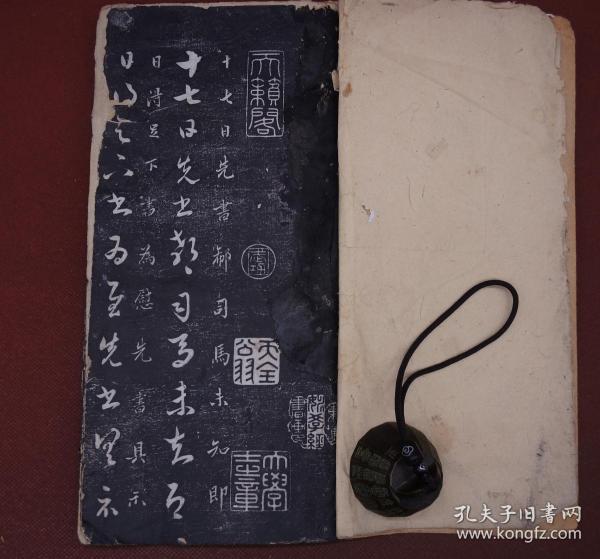 天籟閣
十七日先書郗司馬未知即
十七日先書郗司馬未去即
日得足下書為慰先書具示
日得足下書為慰先書以具示
孔夫子旧书网
www.kongfz.com